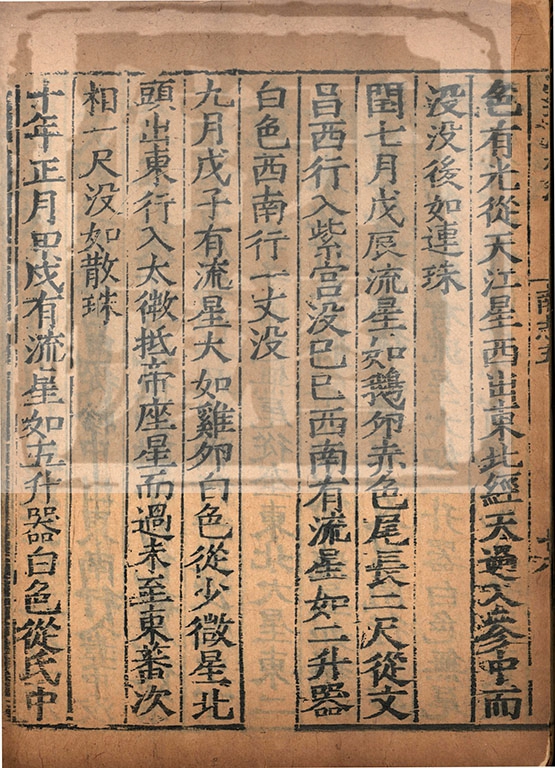 色有光從天江星西出東北經天過入參中而
没没後如連珠
閏七月戊辰流星如鵝卵赤色尾長二尺從文
昌西行入紫宫没己巳西南有流星如二升器
白色西南行一丈没
九月戊子有流星大如雞卵白色從少微星北
頭出東行入太微抵帝座星而過未至東蕃次
相一尺没如散珠
十年正月甲戍有流星如五升器白色從氐中